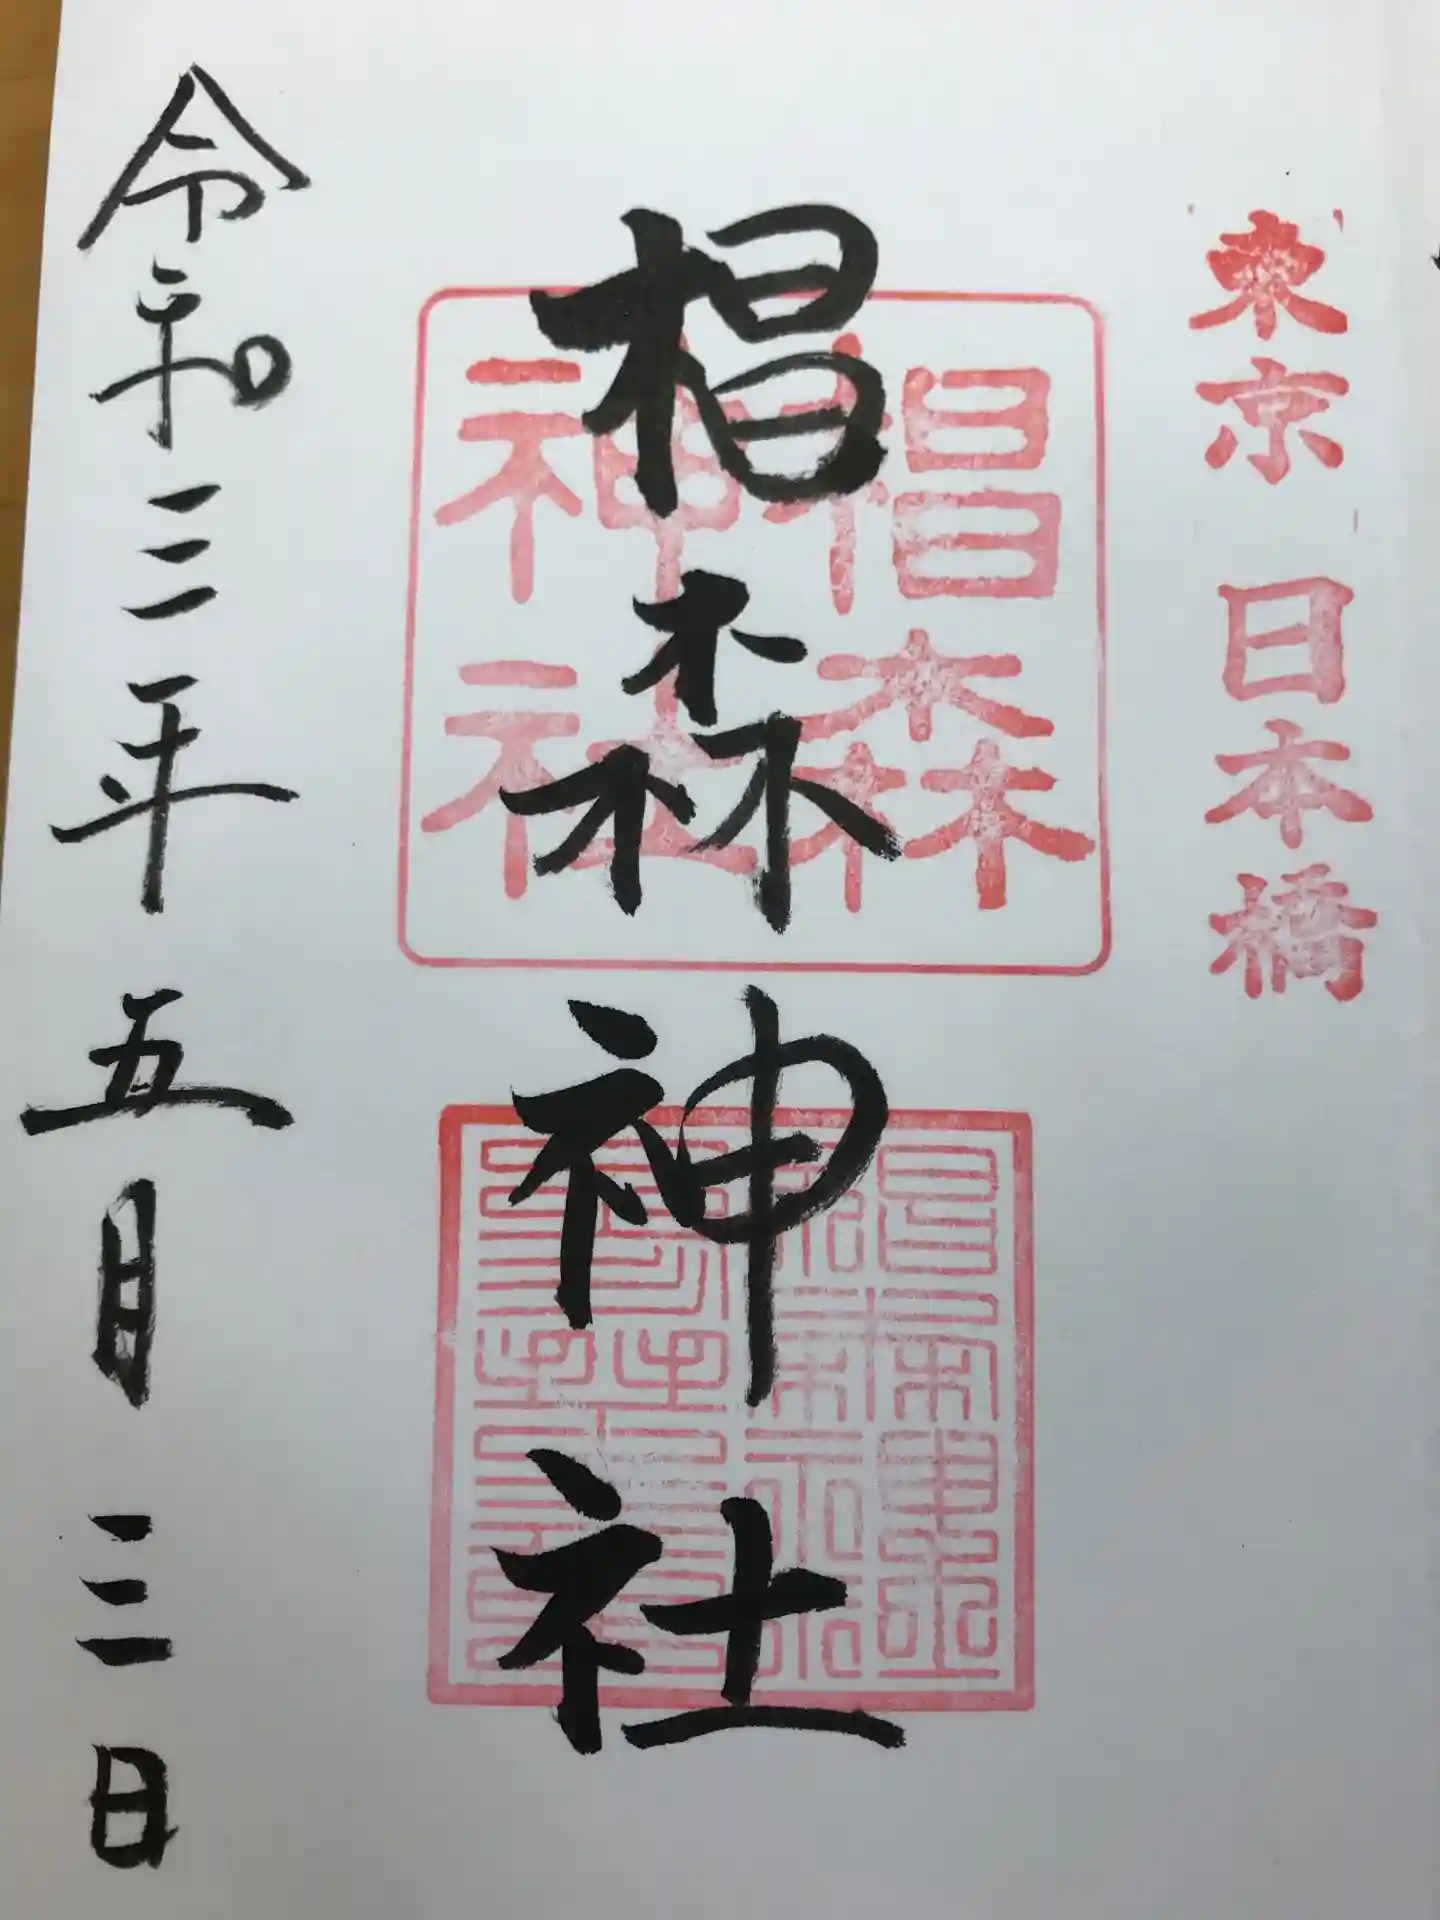 東京 日本橋
椙森神社
椙森
神社
令和三年五月三日